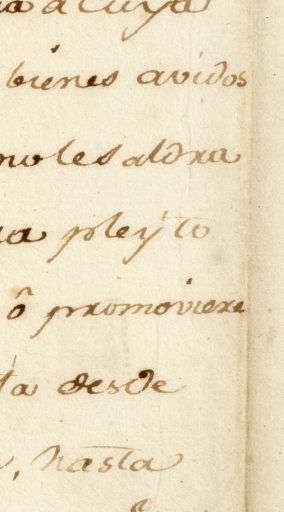 a cuya
bienes avidos
no les aldra
pleyto
ô promoviere
ta desde
, hasta